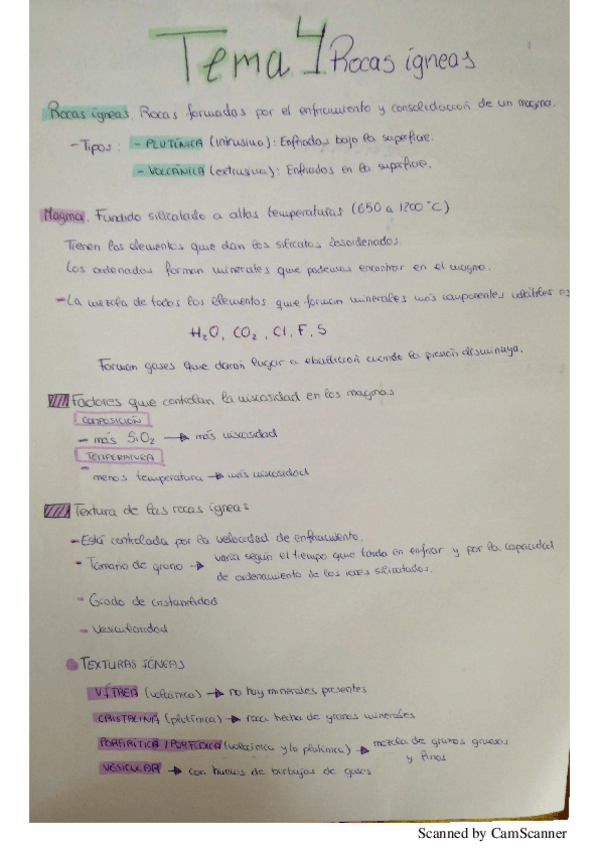 Tema 4 Rocas ígneas
Rocas ígneas. Rocas formadas por el enfriamiento y consolidación de un magma.
- Tipos: - PLUTÓNICA (intrusiva): Enfriados bajo la superficie.
- VOLCÁNICA (extrusiva): Enfriados en la superficie.
Magma. Fundido silicatado a altas temperaturas (650 a 1200 °C)
Tienen los elementos que dan los silicatos desordenados.
Los ordenados forman minerales que podemos encontrar en el magma.
- La mezcla de todos los elementos que forman minerales más componentes volátiles es
H₂O, CO₂, Cl, F, S
Forman gases que darán lugar a ebullición cuando la presión disminuya.
Factores que controlan la viscosidad en los magmas
COMPOSICIÓN
- más SiO₂ → más viscosidad
TEMPERATURA
- menos temperatura → más viscosidad
Textura de las rocas ígneas
- Está controlada por la velocidad de enfriamiento.
- Tamaño de grano → varía según el tiempo que tarda en enfriar y por la capacidad
de ordenamiento de los iones silicatados.
- Grado de cristalinidad
- Vesicularidad
TEXTURAS ÍGNEAS
VÍTREA (volcánica) → no hay minerales presentes
CRISTALINA (plutónica) → roca hecha de granos minerales
PORFIRÍTICA / PORFÍDICA (volcánica y/o plutónica) → mezcla de granos gruesos
y finos
VESICULAR → con huecos de burbujas de gases
Scanned by CamScanner